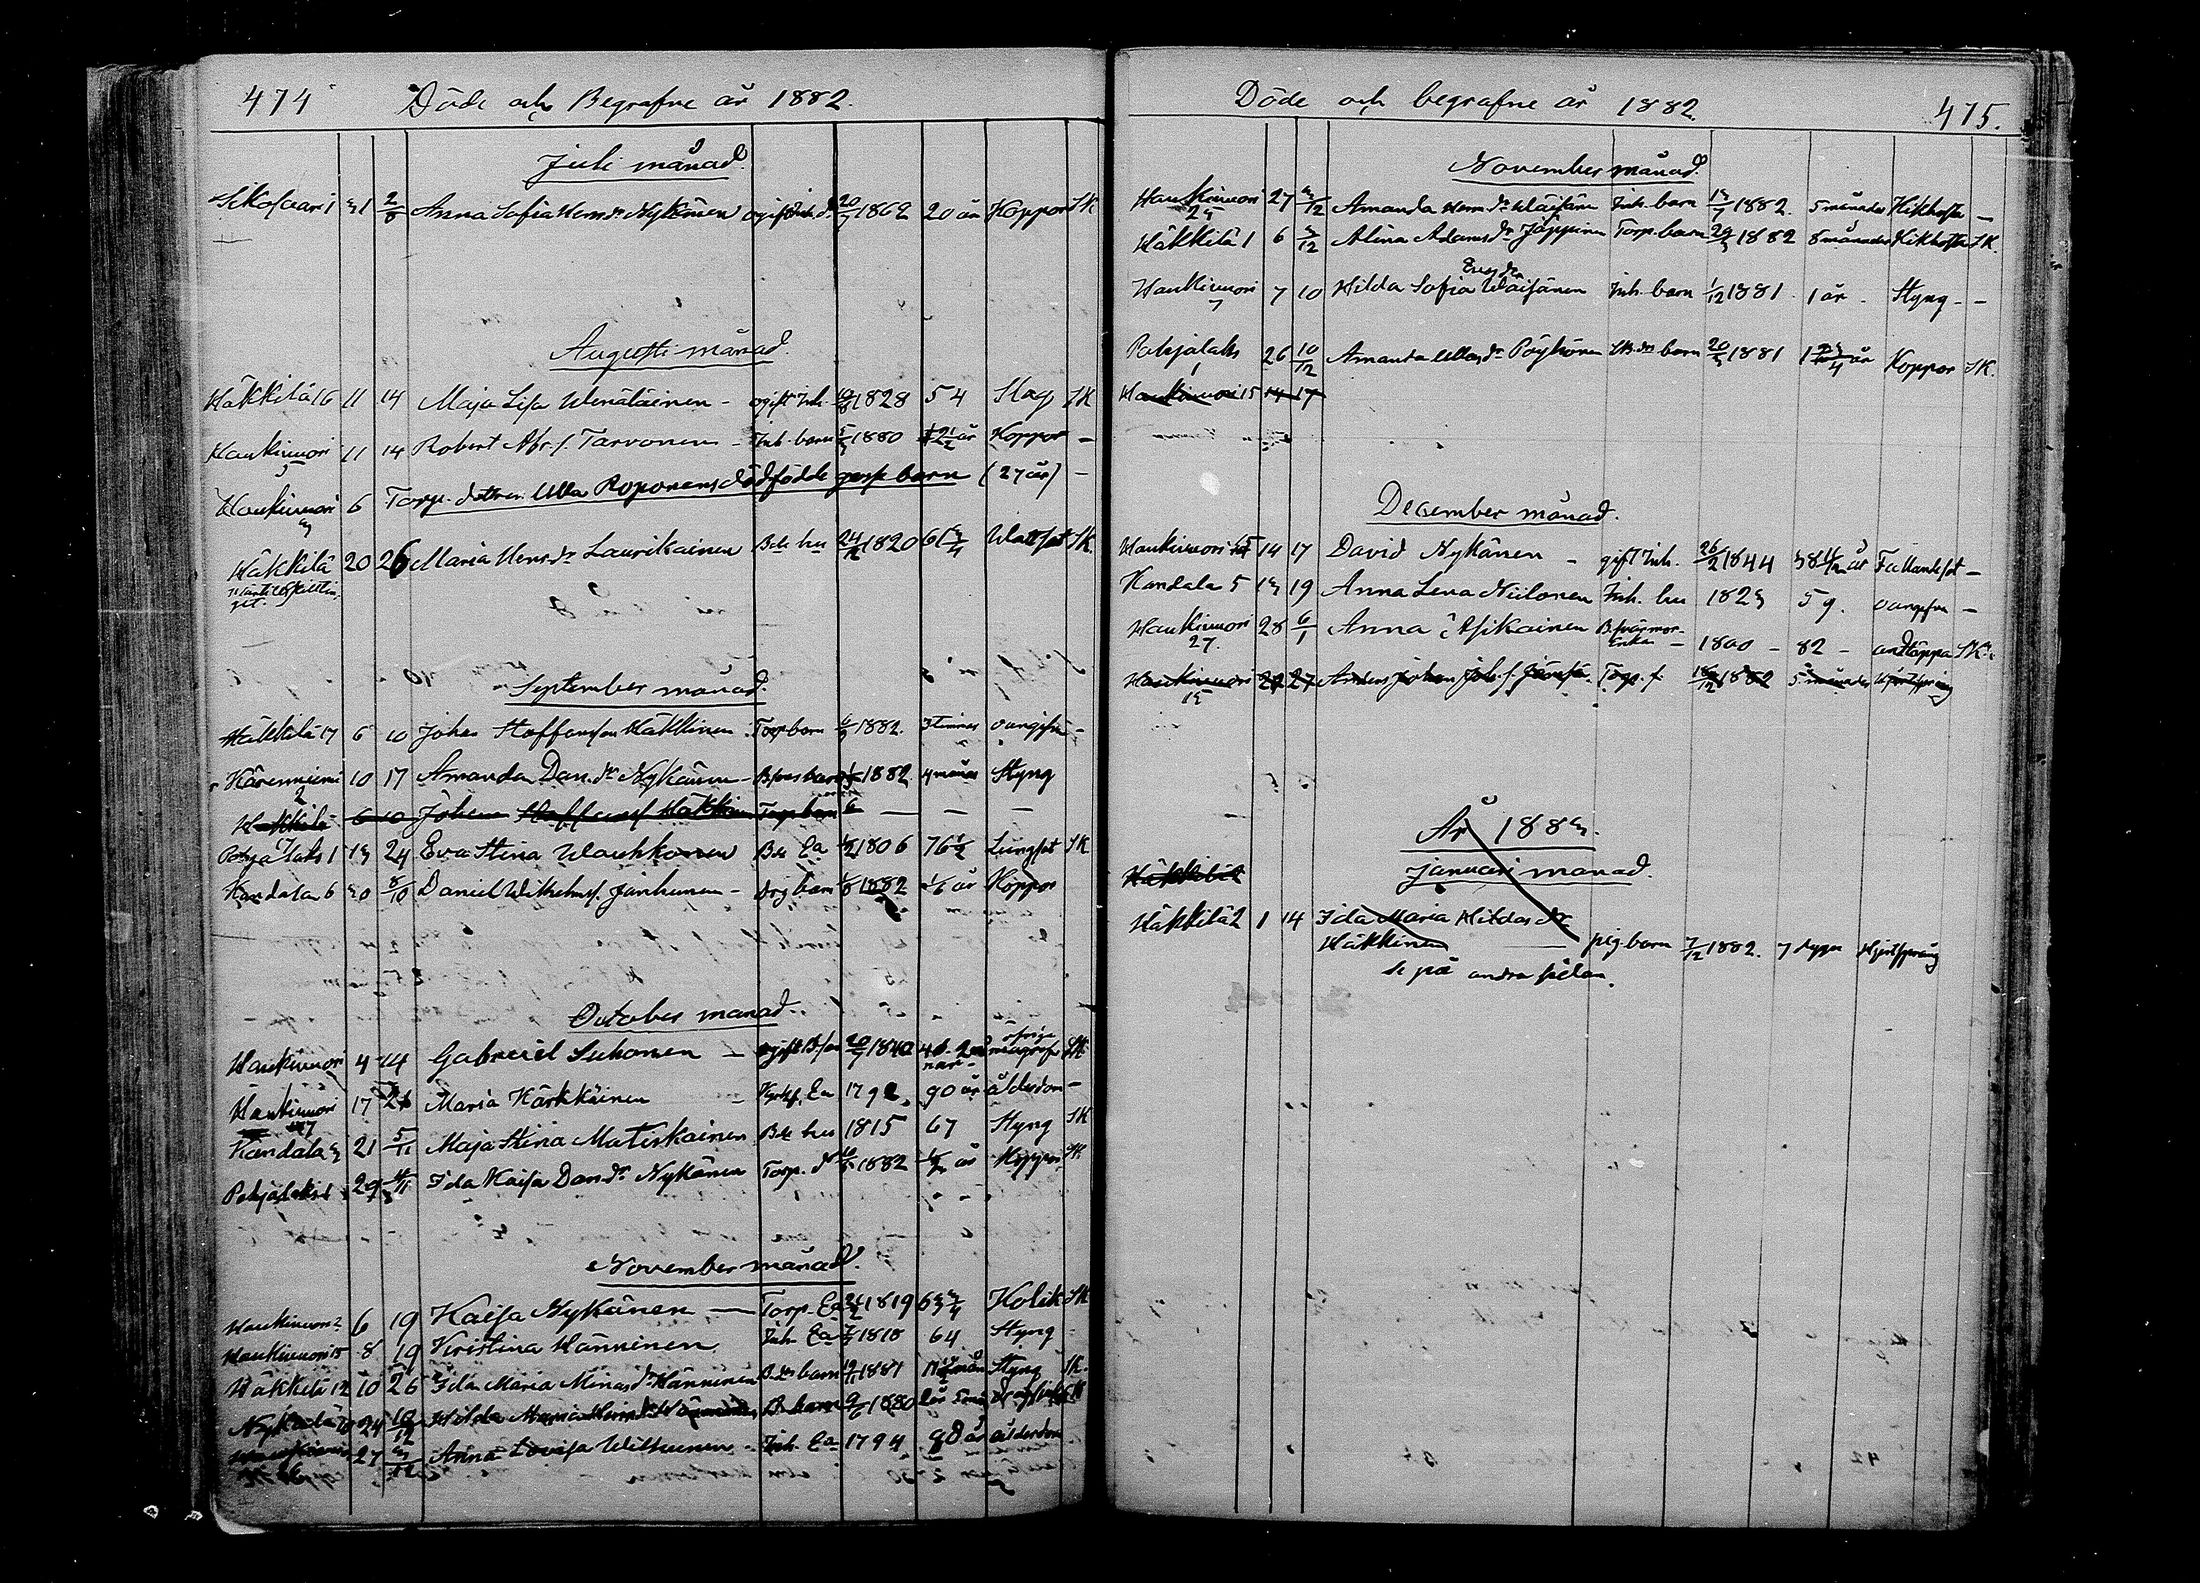 474 Döde och Begrafne år 1882.
Juli månad.
Sikosaari 1 31 2/8 Anna Sofia Hemsdr Nykänen ogift Inh. dr 20/7 1862 20 år Koppor SK
Augusti månad.
Häkkilä 16 11 14 Maja Lisa Wenäläinen - ogift Inh. 1828 54 Slag SK
Haukivuori 11 14 Robert Abr. s. Tarvonen - Inh. barn 1880 2 1/2 år Koppor -
3
Haukivuori 6 Torp. dottren Ulla Roponens dödfödde gosse barn (27 år) -
3
Häkkilä 20 26 Maria Hemsdr Laurikainen Bde hu 24/12 1820 61 3/4 Wattsot SK
September månad.
Häkkilä 17 6 10 Johan Staffansson Häkkinen Torp barn 6/9 1882. 3 timmar oangifvn -
Kärenniemi 10 17 Amanda Dan. dr Nykänen - 1882 4 månad Styng
2
Häkkilä 6 10 Johan Staffans s Häkkinen Torp barn 6 — — —
Pohjalaks 1 13 24 Eva Stina Waukkonen Bde Ea 1806 76 1/2 Lungsot SK
Kandala 6 30 8/10 Daniel Wilhelms s. Janhunen - Drg barn 1/8 1882 1/6 år Koppor
October månad.
Haukivuori 4 14 Gabriel Suhonen - ogift 20/7 1840
Haukivuori 17 Maria Kärkkäinen - Ea 1792. 90 år ålderdom -
Kandala 3 21 5/11 Maja Stina Matiskainen Bde hu 1815 67 Styng SK
Pohjalaks 1 29 Ida Kaisa Dansdr Nykänen Torp. dr 1882 år Koppor SK
November månad.
Haukivuori 2 6 19 Kaisa Nykänen — Torp. Ea 1819 63 3/4 Kolik SK
Haukivuori 15 8 19 Kristina Hänninen Inh. Ea 1818 64 Styng -
Häkkilä 12 10 26 Ida Maria Minasdr Hänninen barn 1881 Styng SK.
24 10/12 Hilda Maria 9/6 1880
27 3/12 Anna Lovisa Inh. Ea 1794 88 år ålderdom
Döde och begrafne år 1882. 475.
November månad.
Haukivuori 27 3/12 Amanda Hem. dr Wäisänen Inh. barn 13/7 1882. 5 månader Kikhosta -
23
Häkkilä 1 6 3/12 Alina Adamsdr Jäppinen Torp. barn 29/3 1882 8 månader Kikhosta SK.
Haukivuori 7 10 Hilda Sofia Wäisänen Inh. barn 1/12 1881. 1 år - Styng - -
7
Pohjalaks 26 10/12 Amanda Ullasdr Pöyhönen barn 20/3 1881 1 3/4 år Koppor SK.
1
Haukivuori 15 14 17
December månad.
Haukivuori 14 17 David Nykänen - gift Inh. 26/2 1844 år Fallandesot -
Kandala 5 13 19 Anna Lena Niilonen Inh. hu 1823 59. oangifvn -
Haukivuori 28 6/1 Anna Asikainen Enka - 1800 - 82 - andtäppa SK.
27.
Haukivuori 27 Anders Johan Joh. s. Torp. s. 1882 5 månader
15
År 1883.
Januari månad.
Häkkilä 2
Häkkilä 2 1 14 Ida Maria Hildas dr
Häkkinen — pig. barn 7/12 1882. 7 dygn Hjertsprång
Se på andra sidan.